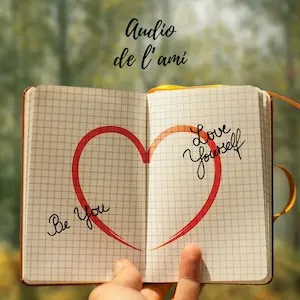 Audio
de l'ami
Love
Yourself
Be You